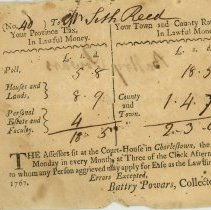 (No. 40) To Mr. Seth Reed
Your Province Tax,
In Lawful Money.
Your Town and County Ra
In Lawful Money.
Poll, 5. 8
Houses and
Lands, 8. 9
Personal
Estate and
Faculty. 4
18. 5
County
and
Town. 1. 4. 7
2. 3. 0
THE Assessors sit at the Court-House in Charlestown, the
Monday in every Month, at Three of the Clock Afterno
to whom any Person aggrieved may apply for Ease as the Law
Errors Excepted,
1767.
Battry Powars, Collector